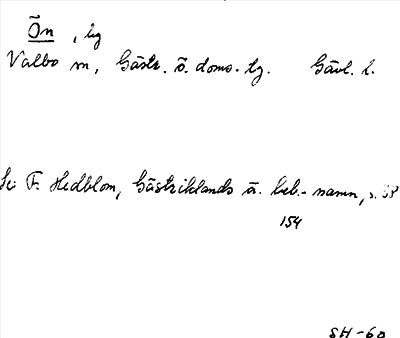 Ön, by
Valbo sn, Gästr. ö. doms. tg. Gävl. l.
Se F. Hedblom, Gästriklands ä. beb.-namn, s. 58
154
SH-60